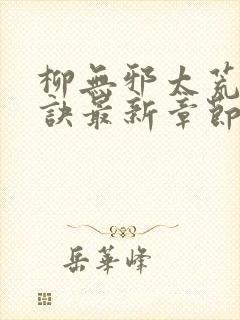 柳無邪太荒
訣最新章節
岳華峰